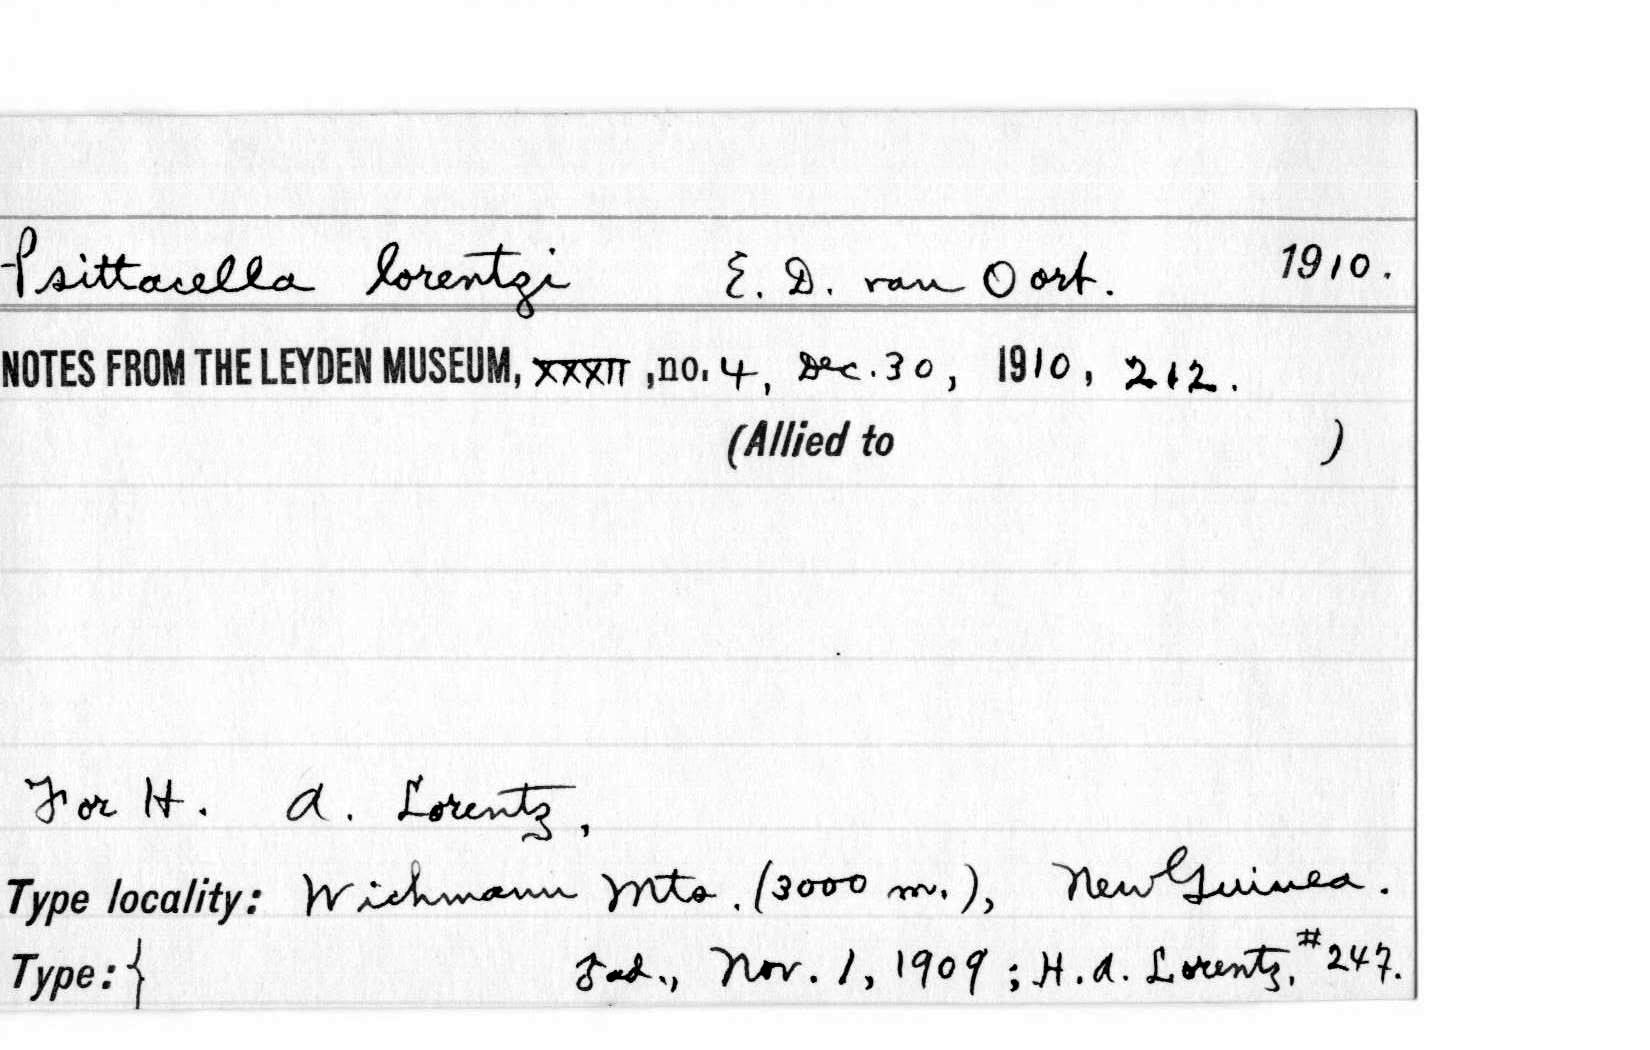 Psittacella lorentzi E. D. van Oort. 1910.
NOTES FROM THE LEYDEN MUSEUM, XXXII, no. 4, Dec. 30, 1910, 212.
(Allied to )
For H. A. Lorentz,
Type locality: Wichmann Mts. (3000 m.), New Guinea.
Type: { ♂ ad., Nov. 1, 1909; H. A. Lorentz, #247.